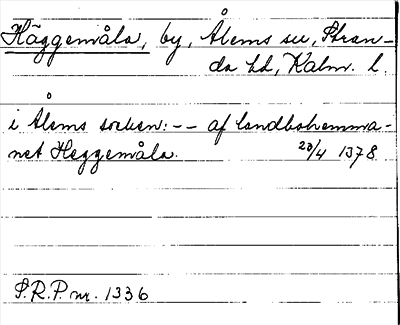 Häggemåla, by, Ålems sn, Stran-
da hd, Kalm. l.
i Åloms sokn: -- af landbohemma-
net Heggemåla. 23/4 1378
S.R.P. nr. 1336